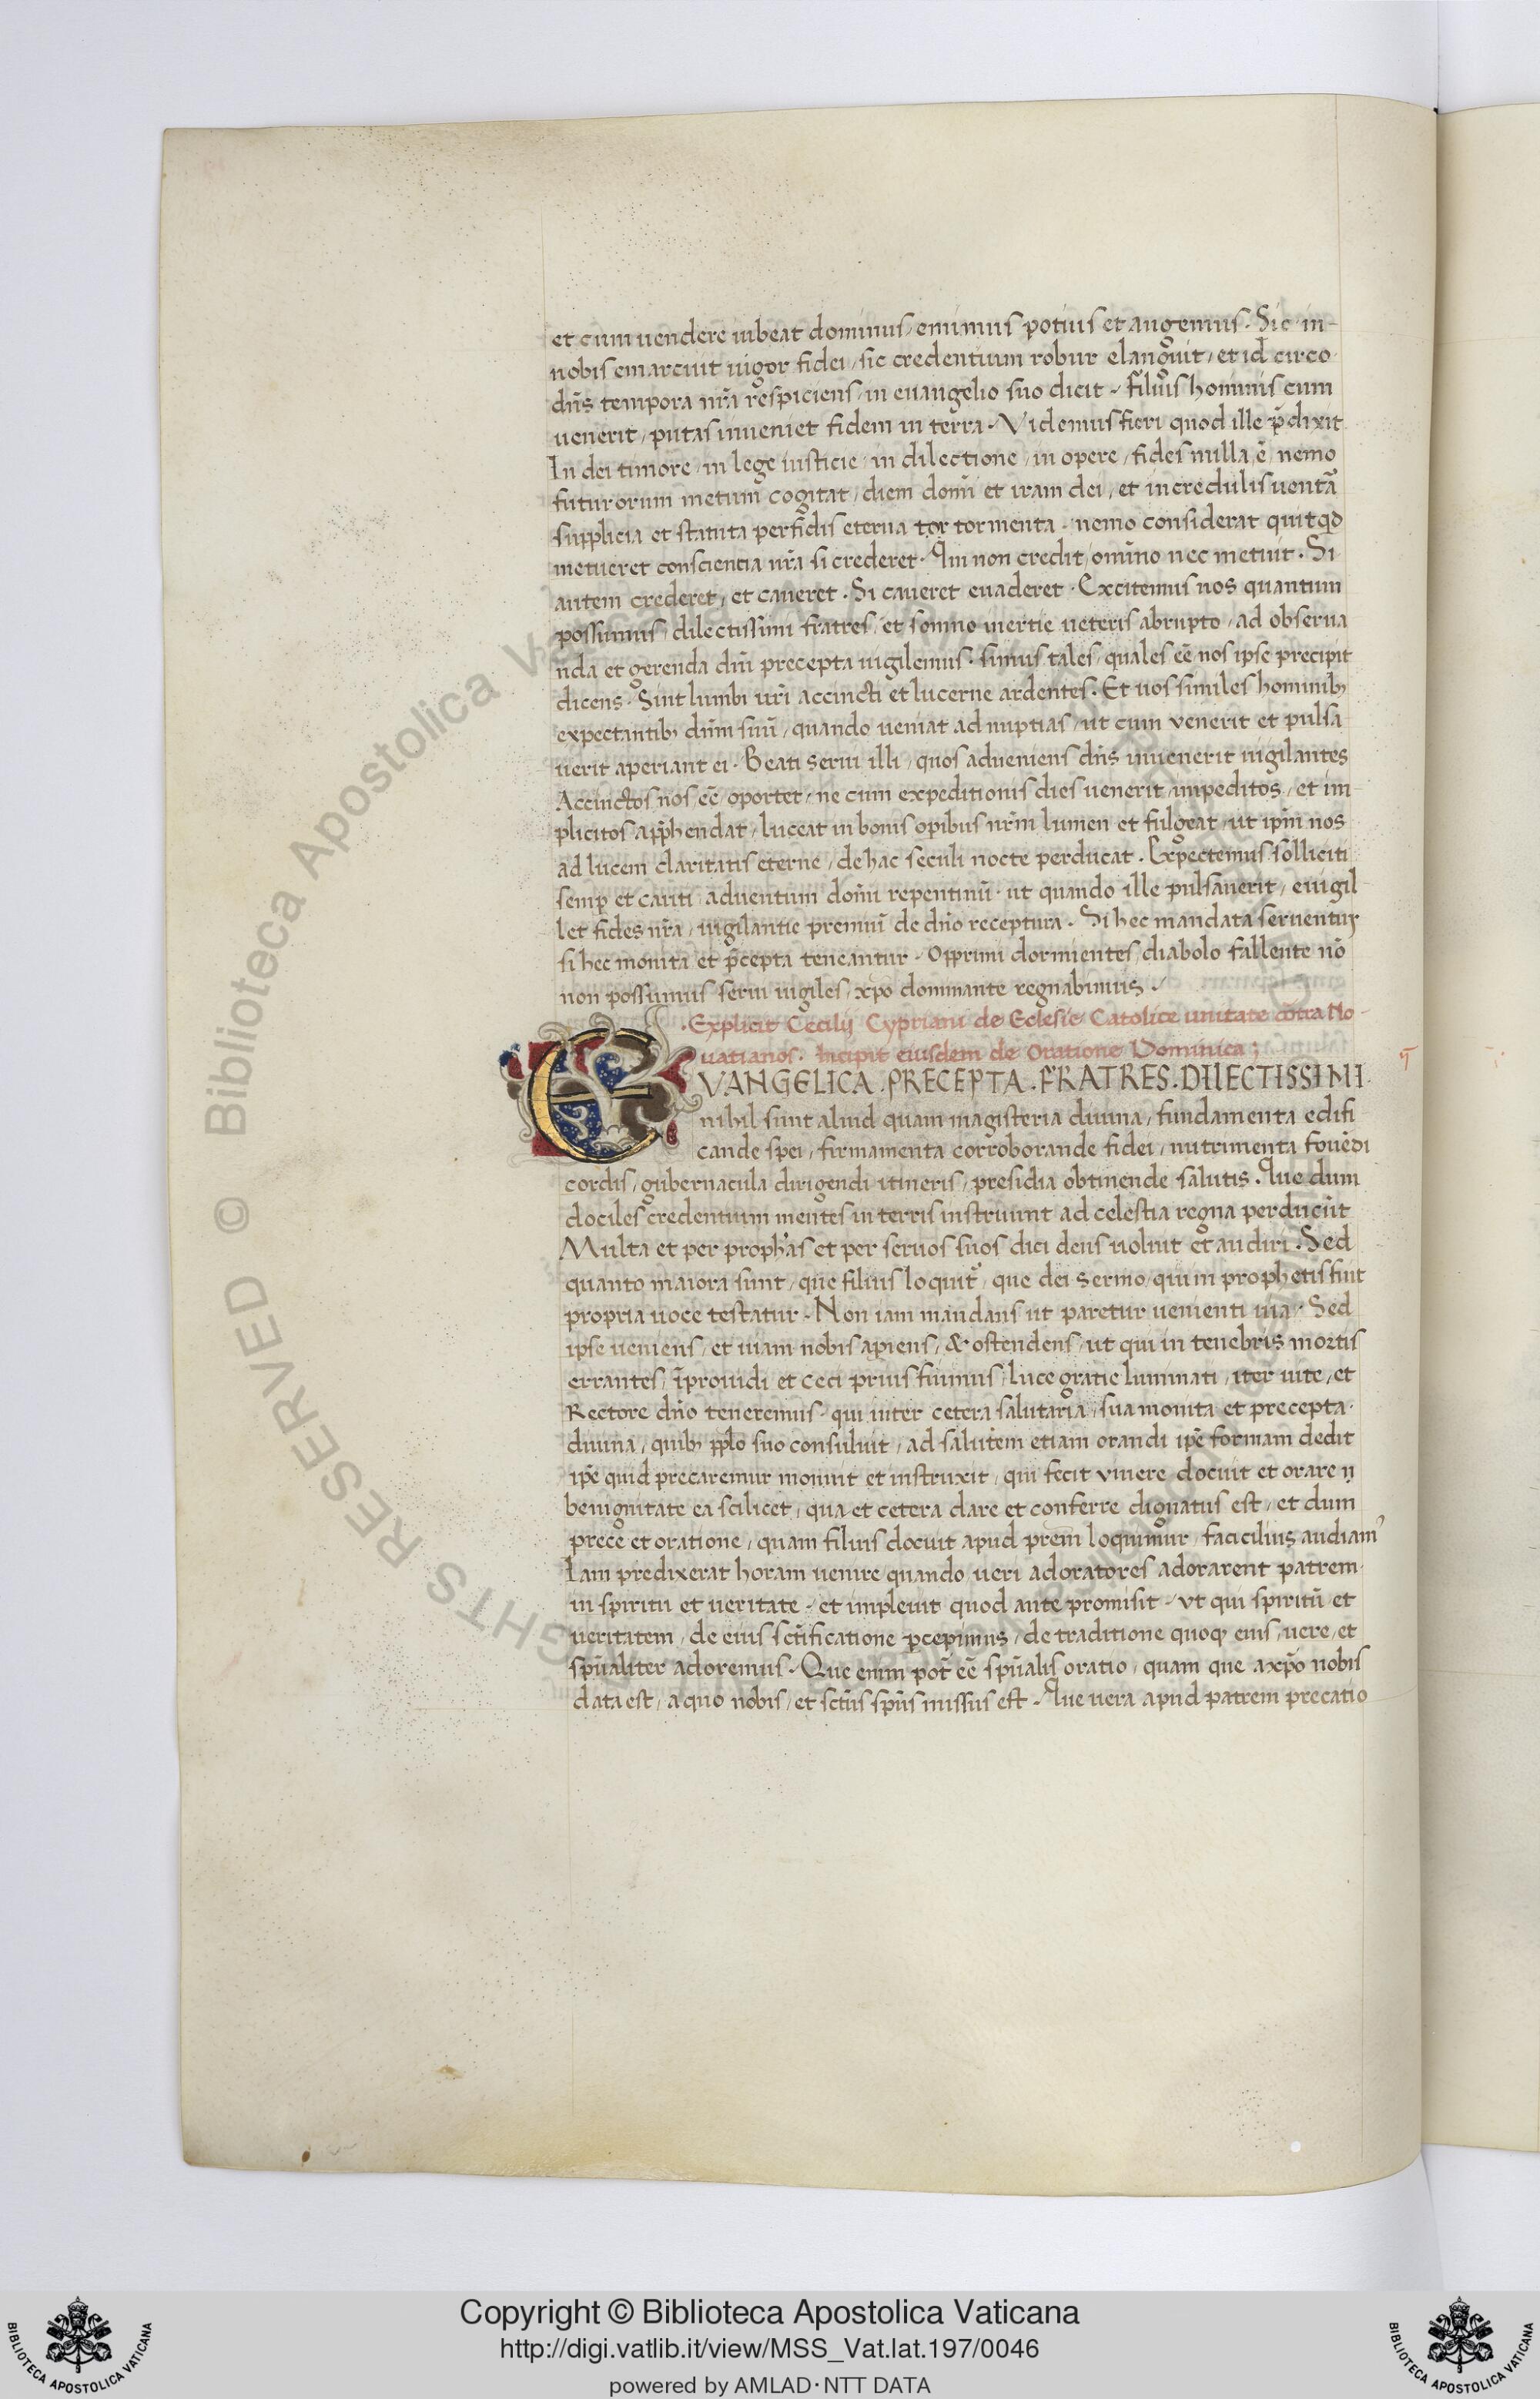 et cum uendere iubeat dominus, emimus potius et augemus. Sic in-
nobis emarcuit uigor fidei, sic credentium robur elanguit, et id circo
dn̄s tempora nr̄a respiciens, in euangelio suo dicit. Filius hominis cum
uenerit, putas inueniet fidem in terra. Videmus fieri quod ille p̄dixit
In dei timore, in lege iusticie, in dilectione, in opere, fides nulla ē, nemo
futurorum metum cogitat, diem domī et iram dei, et incredulis uentā
supplicia et statuta perfidis eterna tor tormenta. nemo considerat quitqd
metueret conscientia nr̄a si crederet. Qui non credit, omīno nec metuit. Si
autem crederet, et caueret. Si caueret euaderet. Excitemus nos quantum
possumus, dilectissimi fratres, et somno inertie ueteris abrupto, ad obserua
nda et gerenda dn̄i precepta uigilemus. simus tales, quales eē nos ipse precipit
dicens. Sint lumbi ur̄i accincti et lucerne ardentes. Et uos similes hominib;
expectantib; dn̄m suū, quando ueniat ad nuptias, ut cum venerit et pulsa
uerit aperiant ei. Beati serui illi, quos adueniens dn̄s inuenerit uigilantes
Accinctos nos eē oportet, ne cum expeditionis dies uenerit, impeditos, et im-
plicitos app̄hendat, luceat in bonis opibus nr̄m lumen et fulgeat, ut ip̄m nos
ad lucem claritatis eterne, de hac seculi nocte perducat. Expectemus solliciti
semp̱ et cauti aduentum domī repentinū. ut quando ille pulsauerit, euigil
let fides nr̄a, uigilantie premiū de dn̄o receptura. Si hec mandata seruentur
si hec monita et p̄cepta teneantur. Opprimi dormientes, diabolo fallente nō
non possumus serui uigiles, xp̄o dominante regnabimus.
.Explicit Cecilij Cypriani de Eclesie Catolice unitate cōtra No-
uatianos. Incipit eiusdem de Oratione Dominica;
EVANGELICA.PRECEPTA.FRATRES.DILECTISSIMI.
nihil sunt aliud quam magisteria diuina, fundamenta edifi
cande spei, firmamenta corroborande fidei, nutrimenta fouēdi
cordis, gubernacula dirigendi itineris, presidia obtinende salutis. Que dum
dociles credentium mentes in terris instruunt ad celestia regna perducūt
Multa et per prophās et per seruos suos dici deus uoluit et audiri. Sed
quanto maiora sunt, que filius loquit᷑, que dei sermo, qui in prophetis fuit
propria uoce testatur. Non iam mandans ut paretur uenienti uia. Sed
ipse ueniens, et uiam nobis apiens, & ostendens, ut qui in tenebris mortis
errantes, īprouidi et ceci prius fuimus, luce gratie luminati, iter uite, et
Rectore dn̄o teneremus. qui inter cetera salutaria, sua monita et precepta.
diuina, quib; pp̄lo suo consuluit, ad salutem etiam orandi ip̄e formam dedit
ip̄e quid precaremur monuit et instruxit, qui fecit viuere docuit et orare
benignitate ea scilicet, qua et cetera dare et conferre dignatus est, et dum
prece et oratione, quam filius docuit apud p̄rem loquimur, facicilius audiam᷒
Iam predixerat horam uenire quando ueri adoratores adorarent patrem.
in spiritu et ueritate. et impleuit quod ante promisit. vt qui spiritū et
ueritatem, de eius sc̄tificatione p̱cepimus, de traditione quoq; eius, uere, et
sp̄ualiter adoremus. Que enim pot̄ eē sp̄ualis oratio, quam que a xp̄o nobis
data est, a quo nobis, et sc̄tus sp̄us missus est. Que uera apud patrem precatio
Copyright © Biblioteca Apostolica Vaticana
http://digi.vatlib.it/view/MSS_Vat.lat.197/0046
powered by AMLAD·NTT DATA
BIBLIOTECA APOSTOLICA VATICANA
BIBLIOTECA APOSTOLICA VATICANA